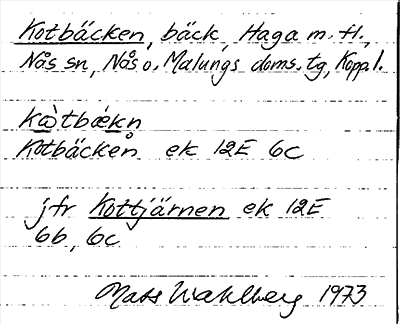 Kotbäcken, bäck, Haga m. fl.,
Nås sn, Nås o. Malungs doms. tg, Kopp. l.
kø̀tbǽkn
Kotbäcken ek 12E 6c
jfr Kottjärnen ek 12E
6b, 6c
Mats Wahlberg 1973